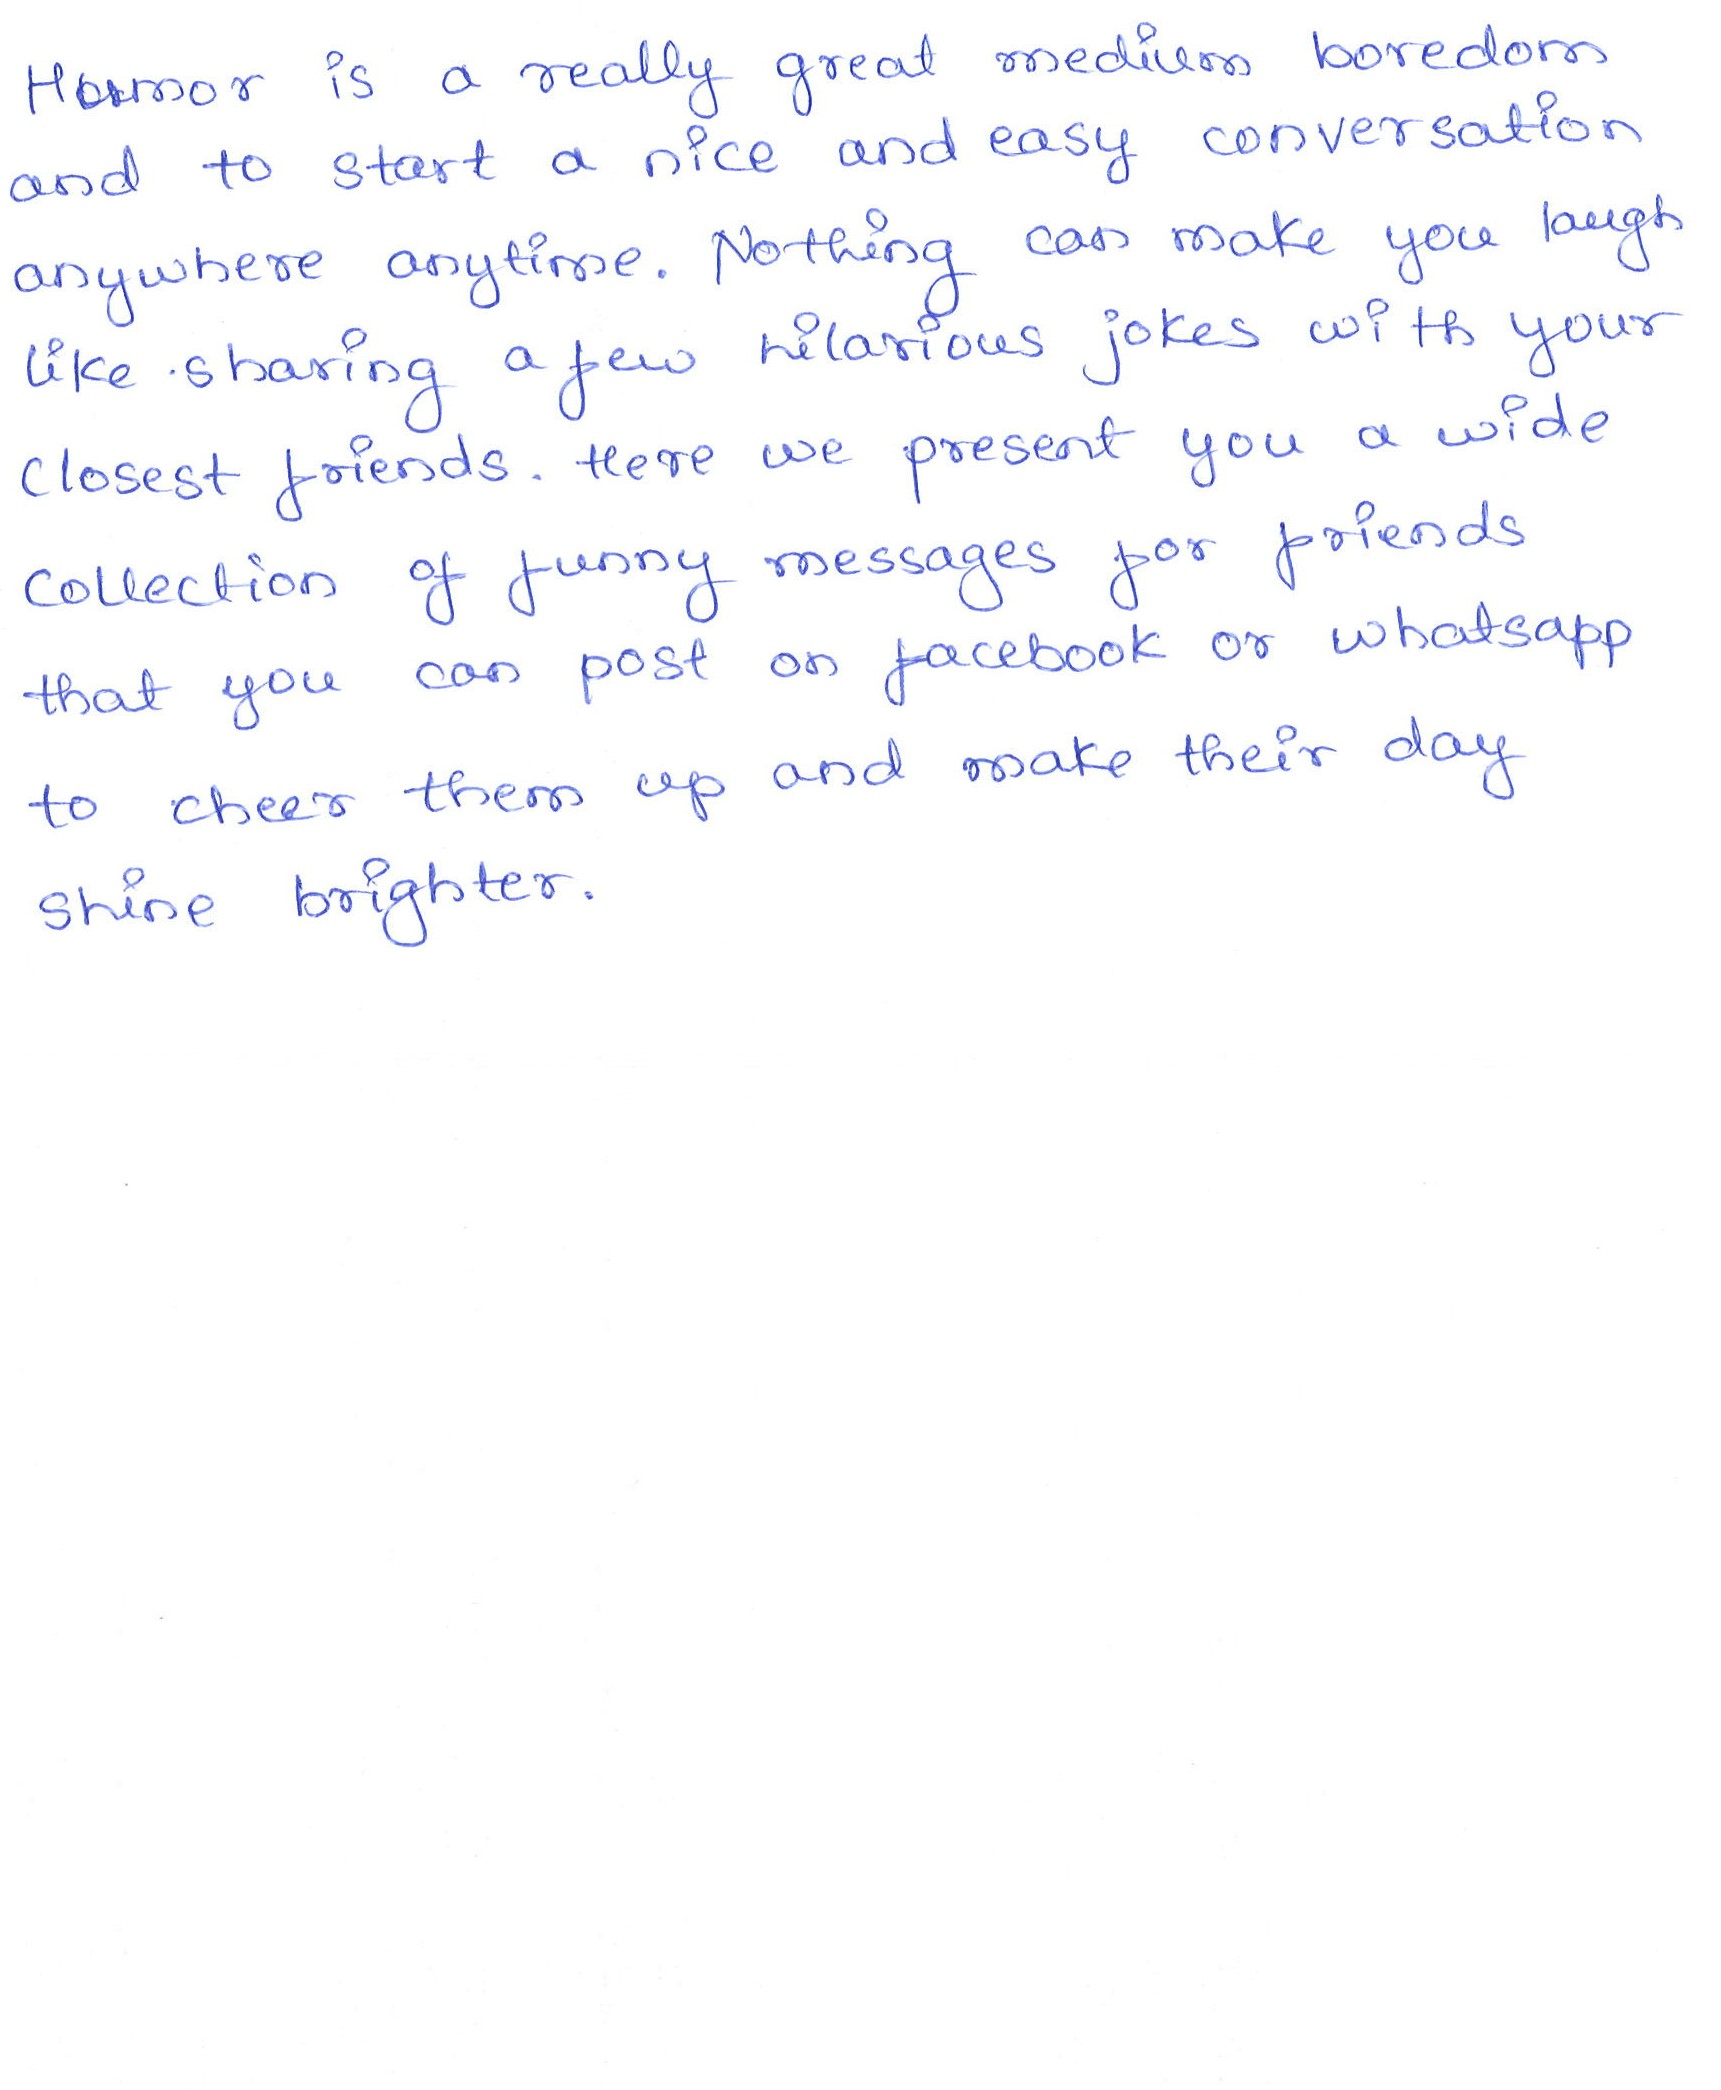 Humor is a really great medium boredom
and to start a nice and easy conversation
anywhere anytime. Nothing can make you laugh
like sharing a few hilarious jokes with your
closest friends. Here we present you a wide
collection of funny messages for friends
that you can post on facebook or whatsapp
to cheer them up and make their day
shine brighter.